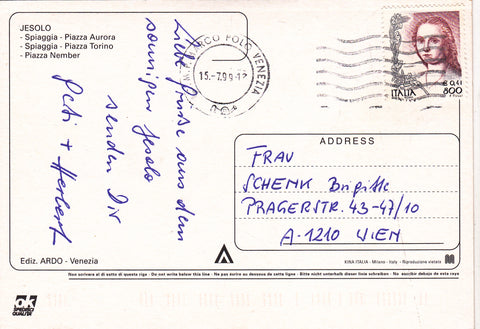 JESOLO
- Spiaggia - Piazza Aurora
- Spiaggia - Piazza Torino
- Piazza Nember
Liebe Grüße aus dem
sonnigen Jesolo
senden Dir
+ Herbert
MARCO POLO VENEZIA
15.-7.99-12
ITALIA
€ 0,41
800
ADDRESS
FRAU
SCHENK Brigitte
PRAGERSTR. 43-47/10
A-1210 WIEN
Ediz. ARDO - Venezia
KINA ITALIA - Milano - Italy - Riproduzione vietata
Non scrivere al di sotto di questa riga - Do not write below this line - Ne pas écrire au dessous de cette ligne - Bitte nicht unterhalb dieser linie schreiben - No escribir debajo de esta raya
ok